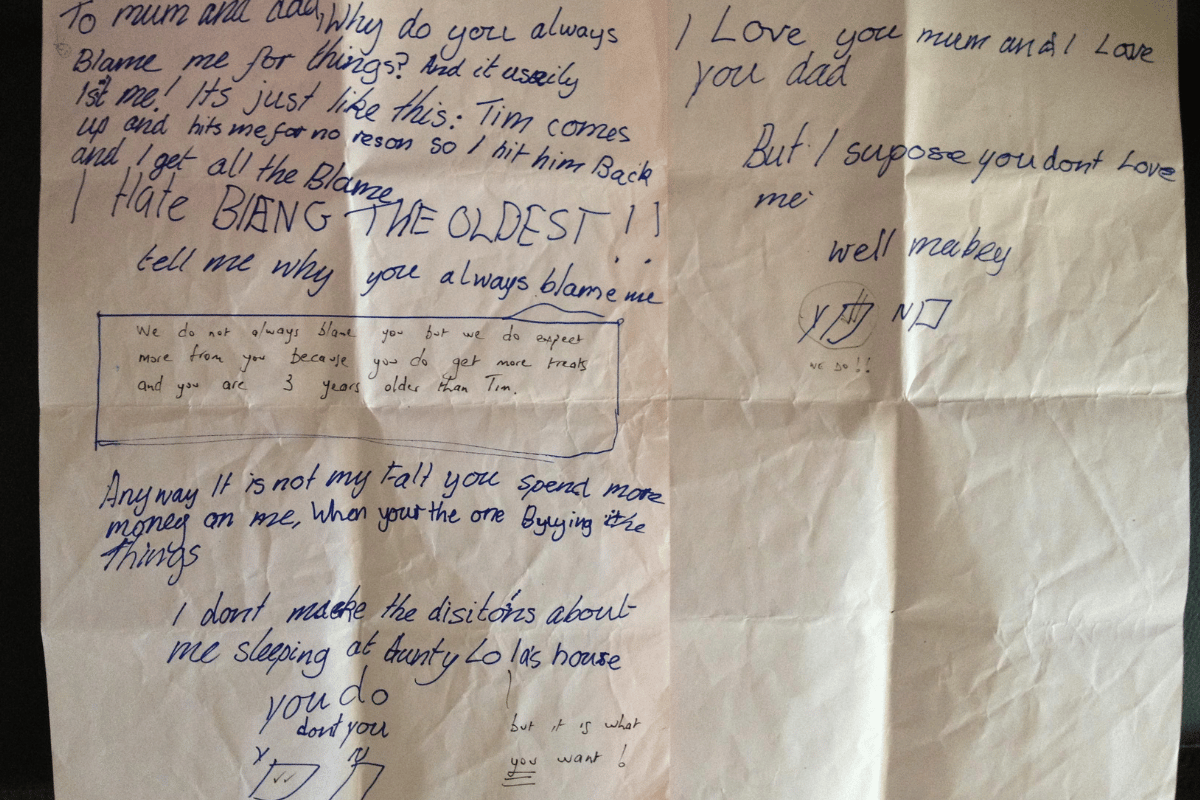 To mum and dad, Why do you always
Blame me for things? And it usarily
1st me! Its just like this: Tim comes
up and hits me for no reson so I hit him Back
and I get all the Blame
I Hate BIENG THE OLDEST!!
tell me why you always blame me
We do not always blame you but we do expect
more from you because you do get more treats
and you are 3 years older than Tim.
Anyway It is not my falt you spend more
money on me, When your the one Byying the
things
I dont macke the disitons about
me sleeping at Aunty Lolas house
you do
dont you
Y N
but it is what
you want!
I Love you mum and I Love
you dad
But I supose you dont Love
me
well mabey
Y N
WE DO!!